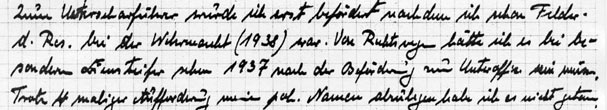 Zum Unterscharführer wurde ich erst befördert nachdem ich schon Feldw.
d. Res. bei der Wehrmacht (1938) war. Von Rechts wegen hätte ich es bei be-
sonderem Diensteifer schon 1937 nach der Beförderung zum Unteroffz. sein müssen.
Trotz 4 maliger Aufforderung meinen pol. Namen abzulegen habe ich es nicht getan